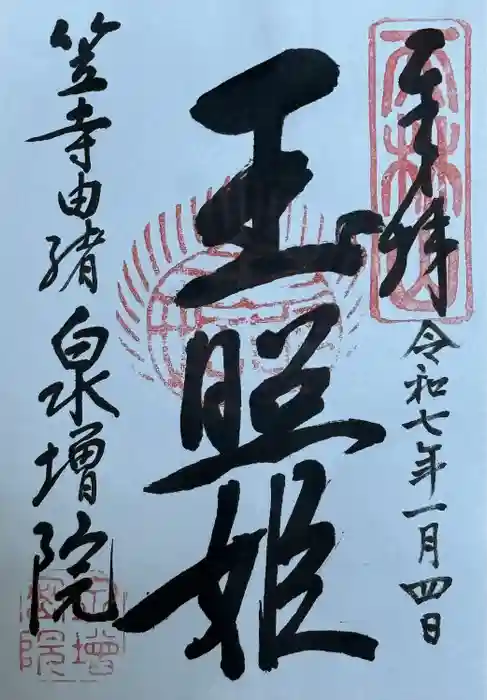 奉拝
天林山
令和七年一月四日
玉照姫
笠寺由緒 泉増院